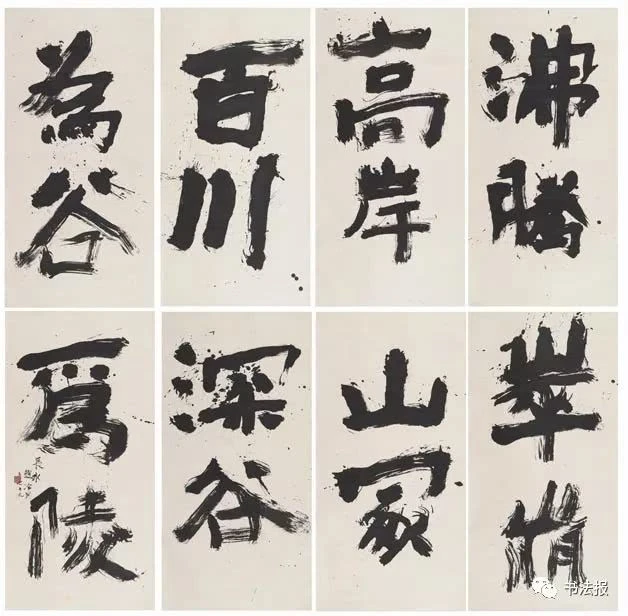 沸騰
高岸
百川
為谷
崒
山冢
深谷
爲陵
书法报